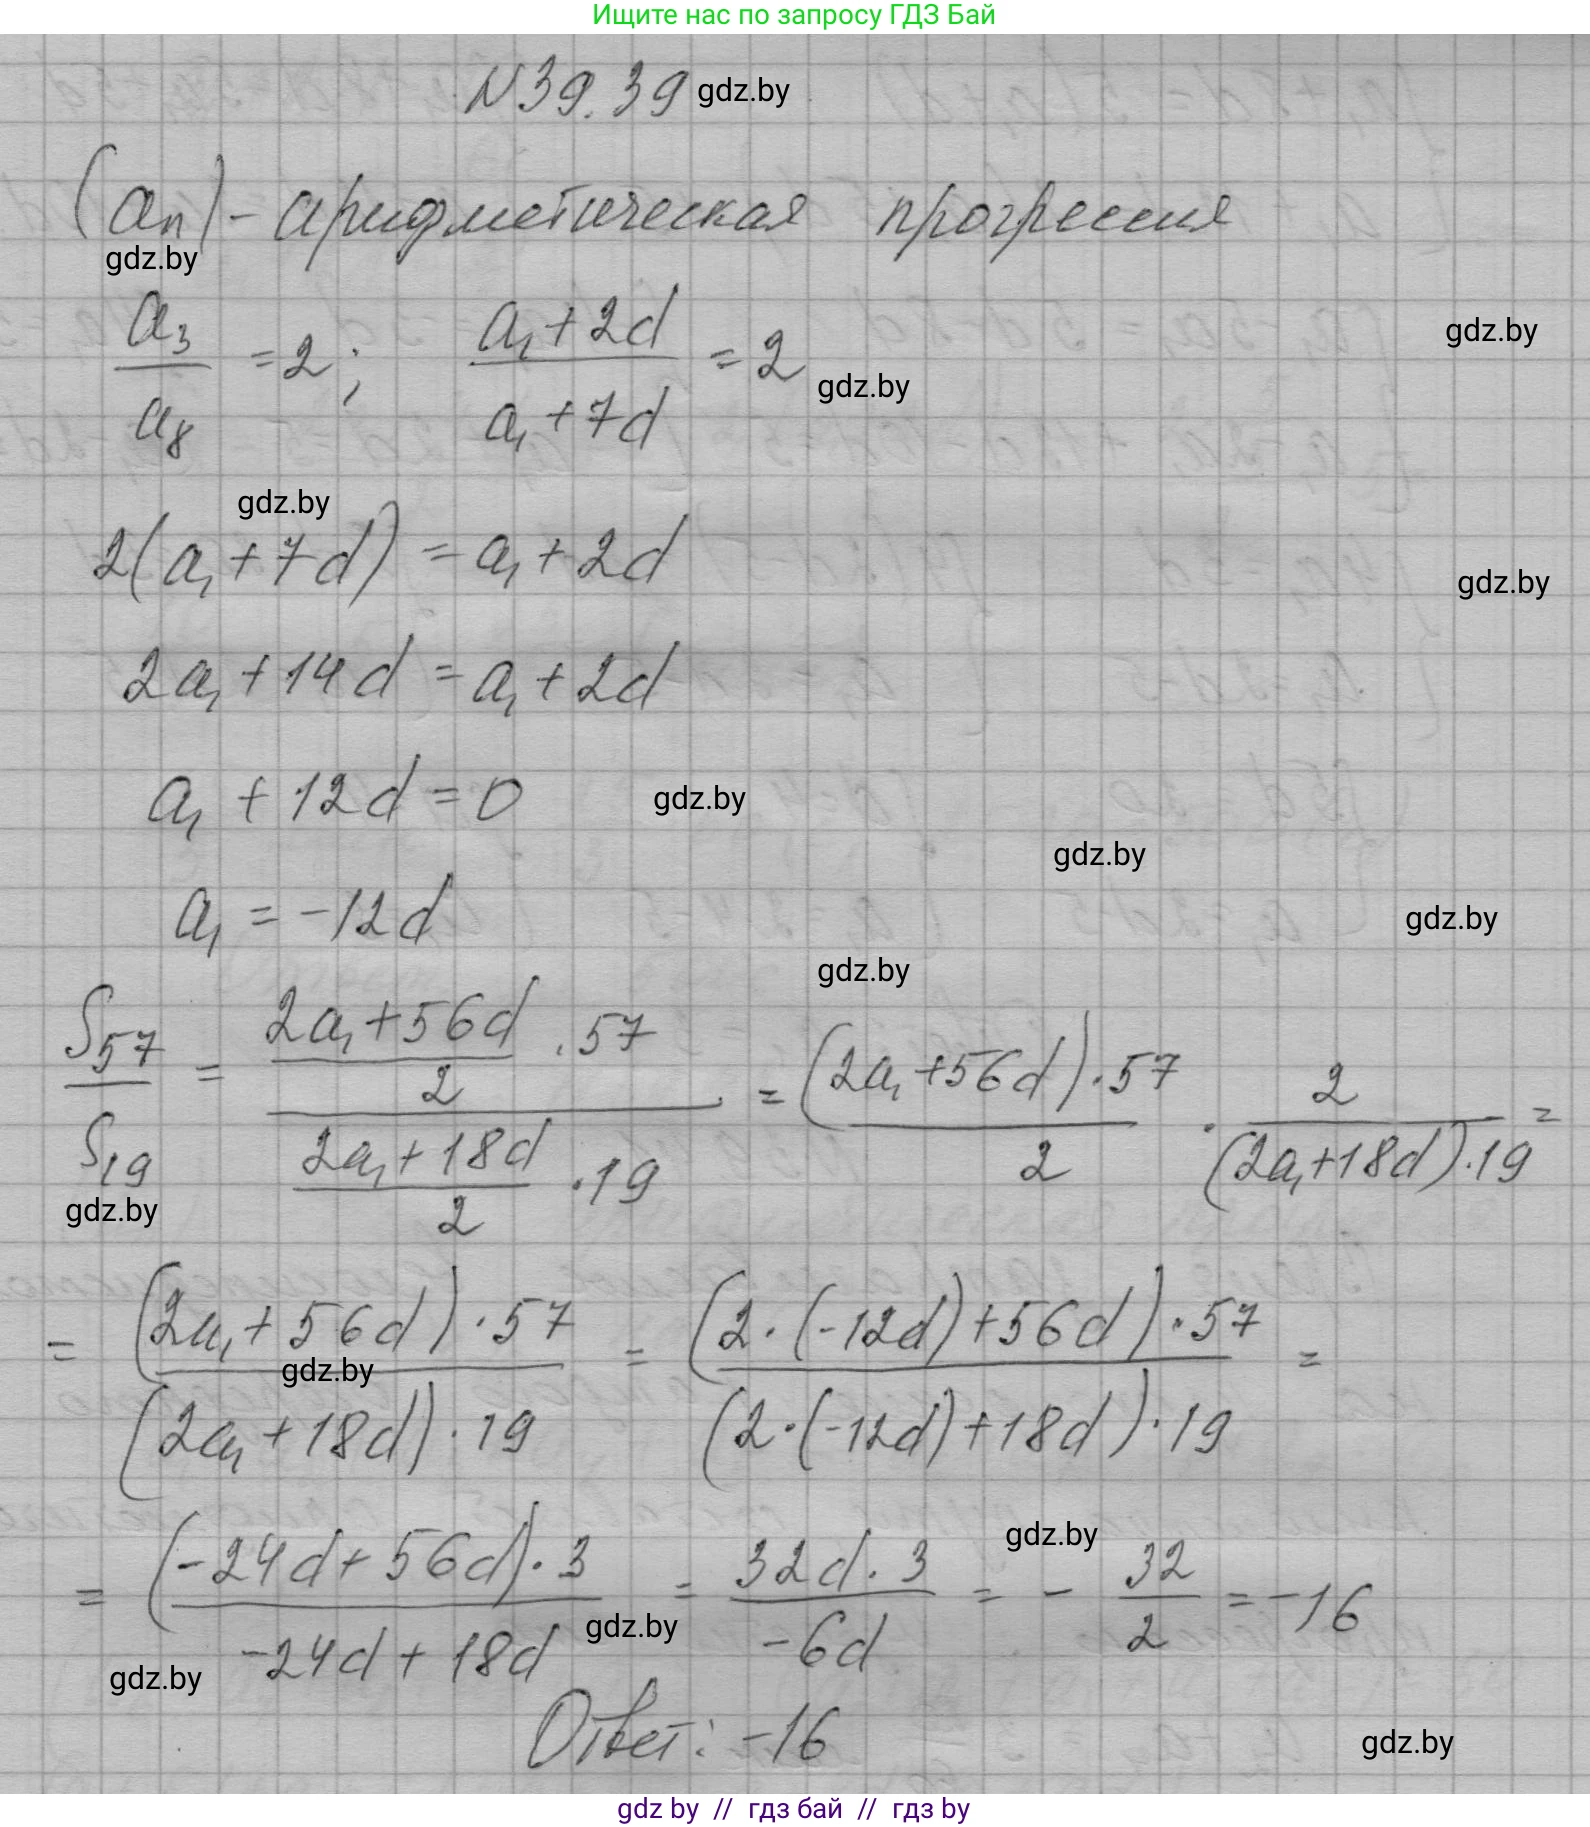 Ищите нас по запросу ГДЗ Бай
N39.39 gdz.by
(aₙ) - арифметическая прогрессия
gdz.by
a₃/a₈ = 2; (a₁ + 2d)/(a₁ + 7d) = 2
gdz.by
gdz.by
gdz.by
2(a₁ + 7d) = a₁ + 2d
gdz.by
2a₁ + 14d = a₁ + 2d
a₁ + 12d = 0
gdz.by
gdz.by
a₁ = -12d
gdz.by
gdz.by
S₅₇/S₁₉ = ((2a₁ + 56d)/2 · 57)/((2a₁ + 18d)/2 · 19) = (2a₁ + 56d) · 57/2 · 2/((2a₁ + 18d) · 19) =
gdz.by
= (2a₁ + 56d) · 57/((2a₁ + 18d) · 19) = (2 · (-12d) + 56d) · 57/((2 · (-12d) + 18d) · 19) =
gdz.by
gdz.by
= (-24d + 56d) · 3/(-24d + 18d) = 32d · 3/(-6d) = - 32/2 = -16
gdz.by
gdz.by
Ответ: -16
gdz.by
gdz by // гдз бай // гдз by